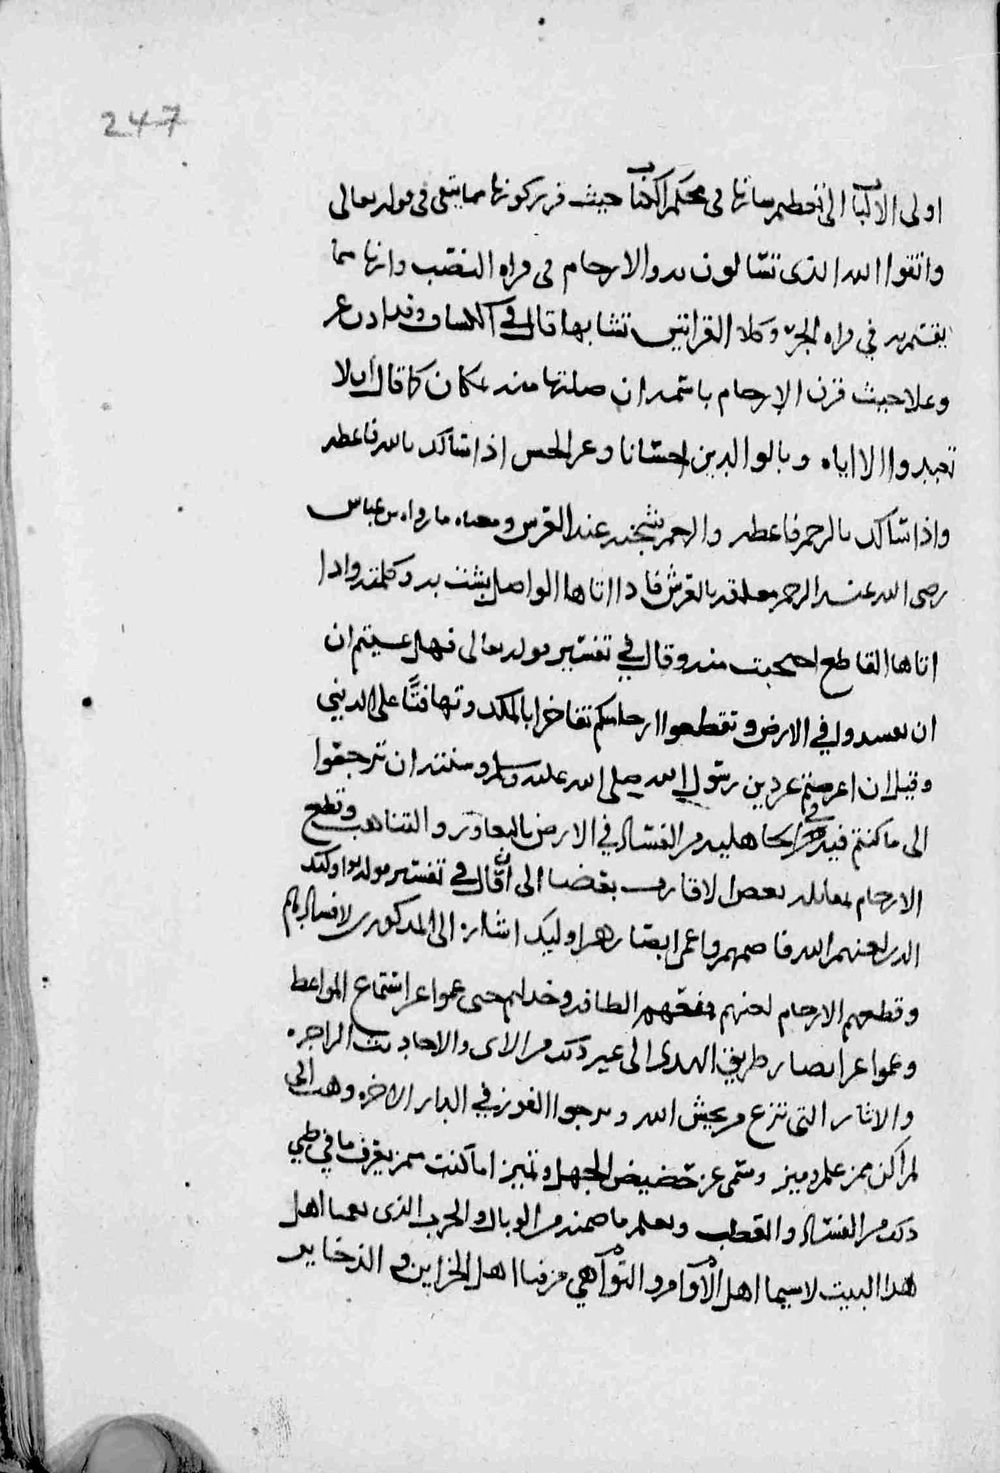 247
اولى الالباب الى تعظيم شانها في محكم الكتاب حيث قرر كونها مما يتقى في قوله تعالى
واتقوا الله الذي تسالون به والارحام في قراه النصب وانها مما
يقسم به في قراه الجر وكلا القراتين تشابها قال في الكشاف وقد اذن عز
وعلا حيث قرن الارحام باسمه ان صلتها منه بمكان كما قال ان لا
تعبدوا الا اياه وبالوالدين احسانا وعن الحسن اذا سالك بالله فاعطه
واذا سالك بالرحم فاعطه والرحم شجنه عند العرش ومعناه ما رواه بن عباس
رضى الله عنه الرحم معلقه بالعرش فاذا اتاها الواصل بشت به وكلمته واذا
اتاها القاطع احتجبت منه وقال في تفسير قوله تعالى فهل عسيتم ان
ان تفسدوا في الارض وتقطعوا ارحامكم تفاخرا بالملك وتهافتا على الدنيا
وقيل ان اعرضتم عن دين رسول الله صلى الله عليه وسلم وسنته ان ترجعوا
الى ما كنتم فيه في الجاهليه من الفساد في الارض بالتغاور والتناهب وقطع
الارحام بمقاتله بعض الاقارب بعضا الى ان قال في تفسير قوله اولئك
الذين لعنهم الله فاصمهم واعمى ابصارهم اوليك اشاره الى المذكورين لافسادهم
وقطعهم الارحام لعنهم فمنعهم الطافه وخذلهم حتى عموا عن استماع المواعظ
وعموا عن ابصار طريق الهدى الى غير ذلك من الاى والاحاديث الزاجره
والاثار التي تنزع من يخش الله ويرجوا الفوز في الدار الاخره
لمن اكن ممن علم وميز وسمى عن حضيض الجهل وتميز اما كنت ممن يعرف ما في طي
ذلك من الفساد والعطب ويعلم ما ضمنه من الوبال والحرب الذي اهل
هذا البيت لاسيما اهل الاوامر والنواهي من فنا اهل الخزاين والذخاير